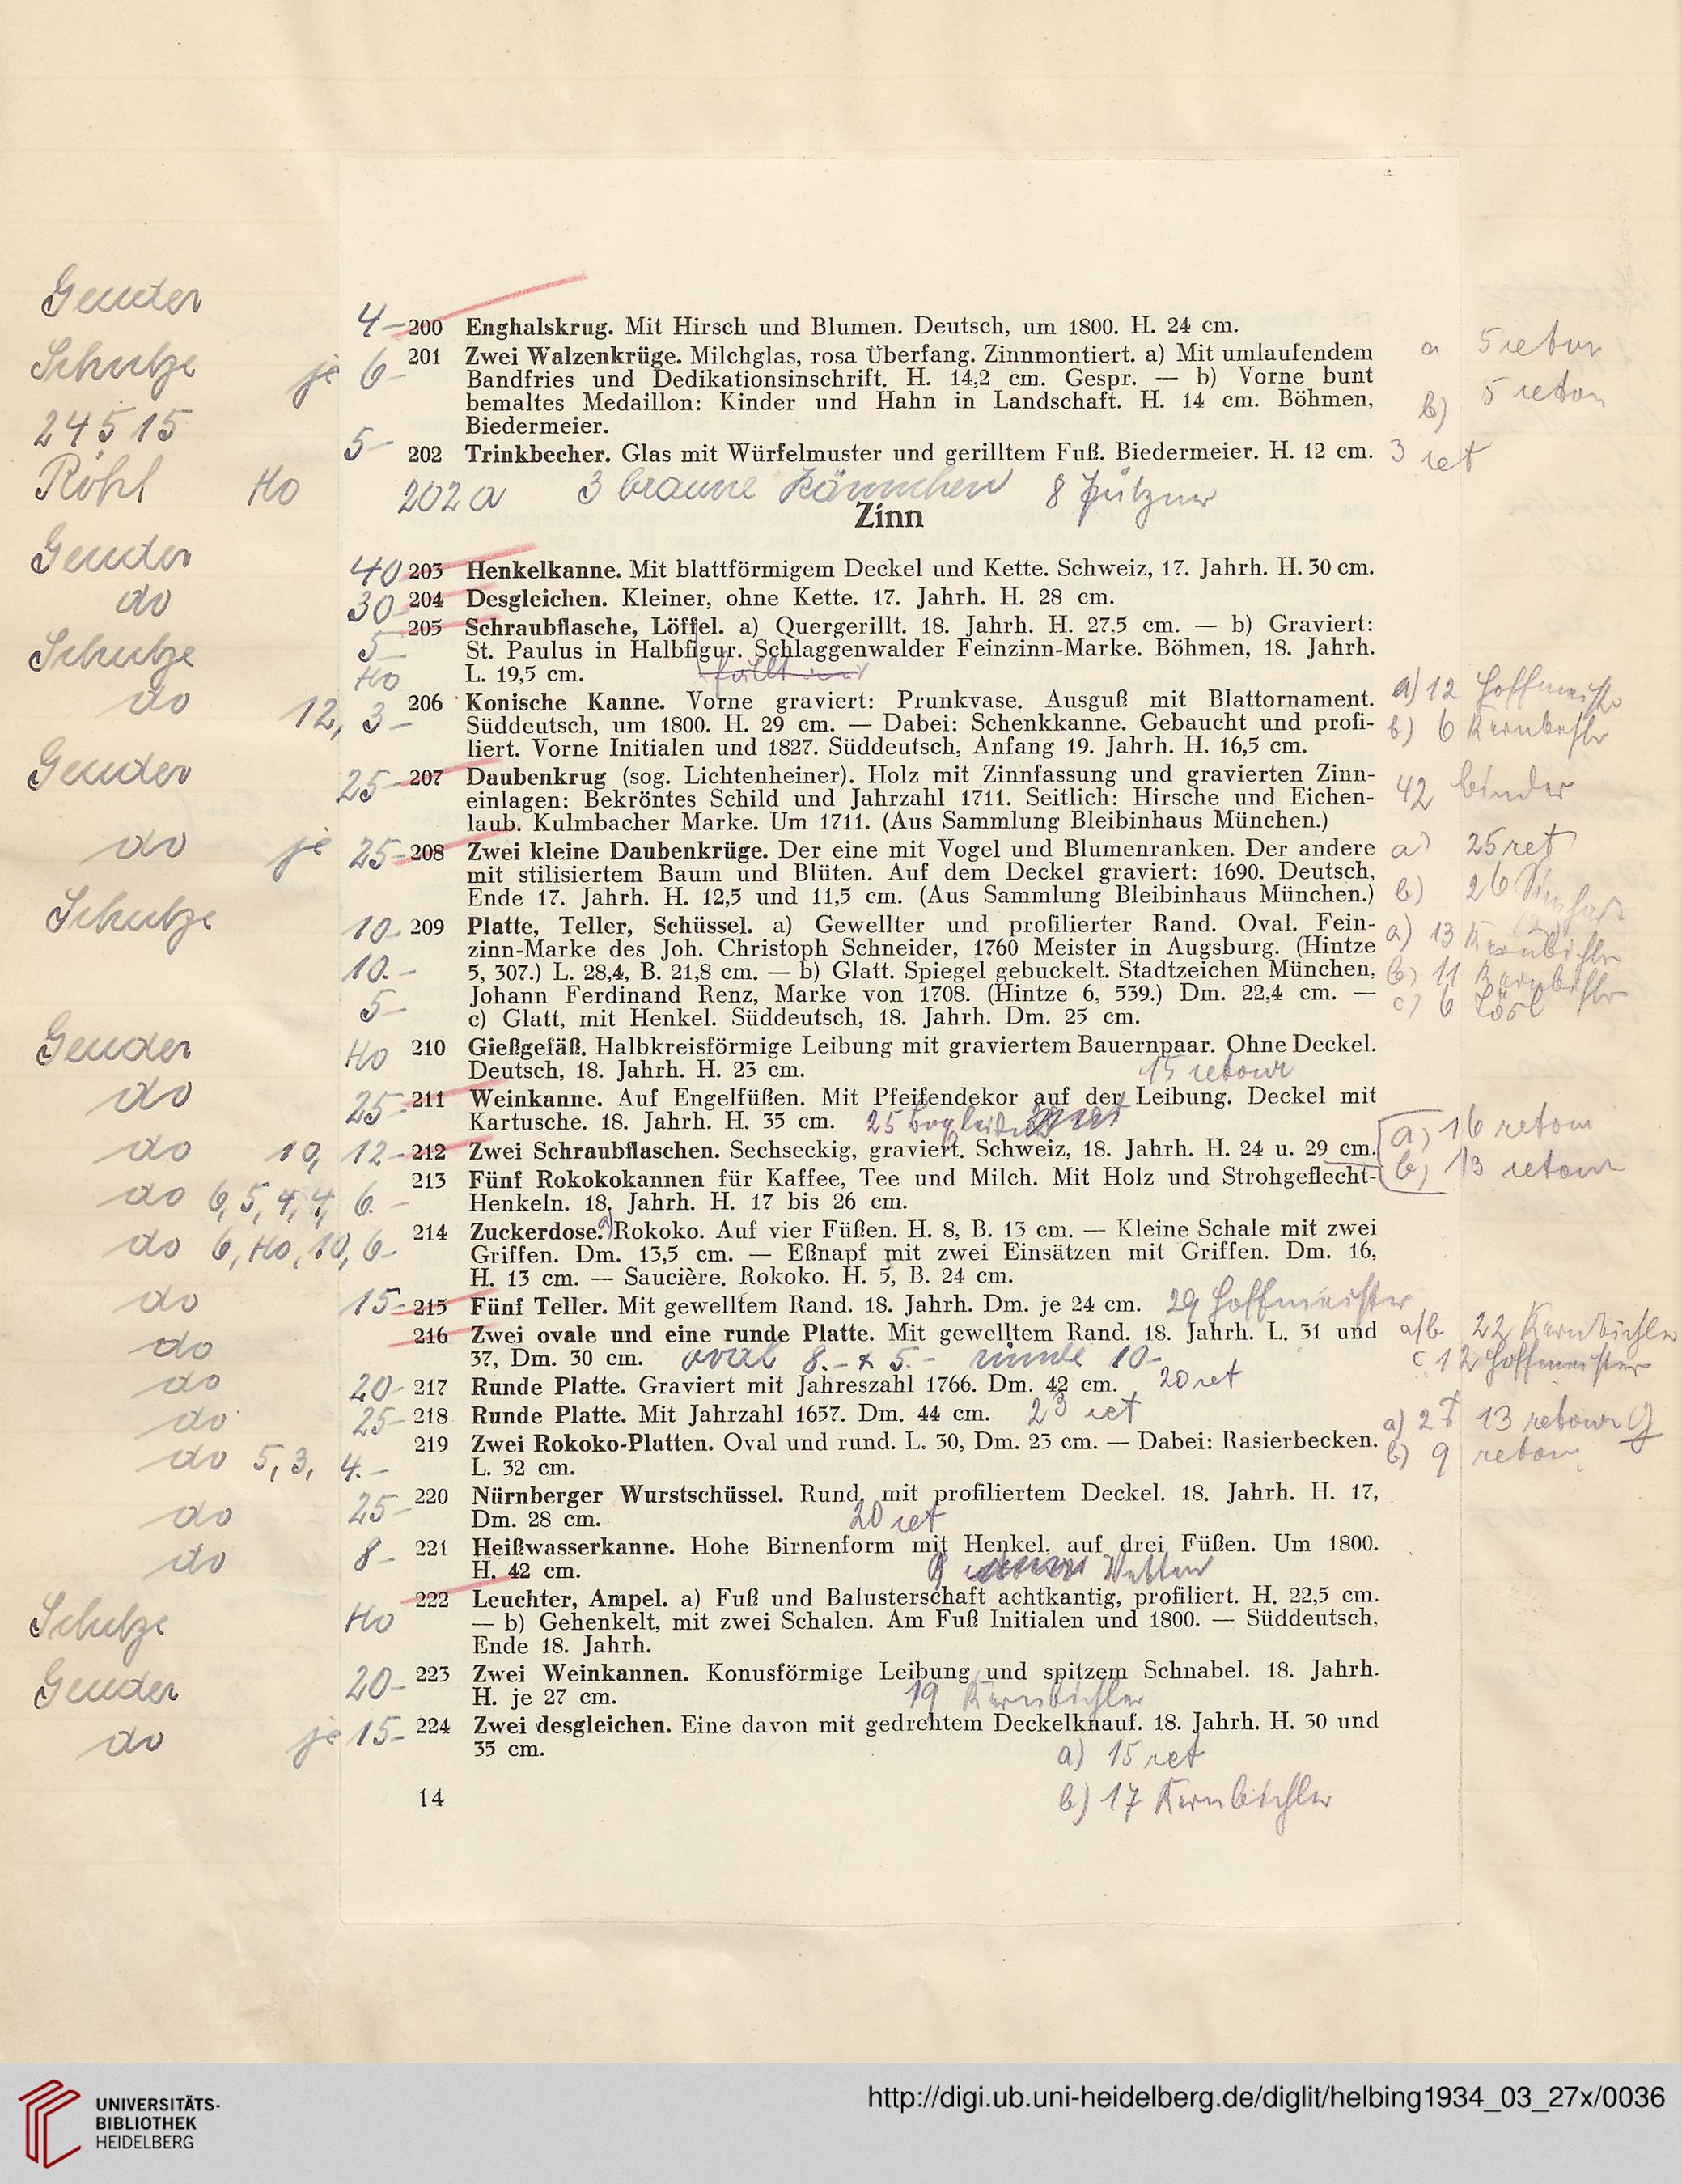 Geuder 4- 200 Enghalskrug. Mit Hirsch und Blumen. Deutsch, um 1800. H. 24 cm.
Schulze je 6- 201 Zwei Walzenkrüge. Milchglas, rosa Überfang. Zinnmontiert. a) Mit umlaufendem a 5 retour
Bandfries und Dedikationsinschrift. H. 14,2 cm. Gespr. — b) Vorne bunt
bemaltes Medaillon: Kinder und Hahn in Landschaft. H. 14 cm. Böhmen, b) 5 retour
Biedermeier.
24515 5- 202 Trinkbecher. Glas mit Würfelmuster und gerilltem Fuß. Biedermeier. H. 12 cm. 3 ret
Röhl Ho 202a 3 braune Kännchen 8
Zinn
Geuder 40 203 Henkelkanne. Mit blattförmigem Deckel und Kette. Schweiz, 17. Jahrh. H. 30 cm.
do 30- 204 Desgleichen. Kleiner, ohne Kette. 17. Jahrh. H. 28 cm.
Schulze 5- 205 Schraubflasche, Löffel. a) Quergerillt. 18. Jahrh. H. 27,5 cm. — b) Graviert:
St. Paulus in Halbfigur. Schlaggenwalder Feinzinn-Marke. Böhmen, 18. Jahrh.
Ho L. 19,5 cm.
do 12, 3- 206 Konische Kanne. Vorne graviert: Prunkvase. Ausguß mit Blattornament. a) 12 Hoffmeister
Süddeutsch, um 1800. H. 29 cm. — Dabei: Schenkkanne. Gebaucht und profi- b) 6 Kernbichler
liert. Vorne Initialen und 1827. Süddeutsch, Anfang 19. Jahrh. H. 16,5 cm.
Geuder 25- 207 Daubenkrug (sog. Lichtenheiner). Holz mit Zinnfassung und gravierten Zinn- 42 Binder
einlagen: Bekröntes Schild und Jahrzahl 1711. Seitlich: Hirsche und Eichen-
laub. Kulmbacher Marke. Um 1711. (Aus Sammlung Bleibinhaus München.)
do je 25- 208 Zwei kleine Daubenkrüge. Der eine mit Vogel und Blumenranken. Der andere a) 25 ret
mit stilisiertem Baum und Blüten. Auf dem Deckel graviert: 1690. Deutsch,
Ende 17. Jahrh. H. 12,5 und 11,5 cm. (Aus Sammlung Bleibinhaus München.) b) 26
Schulze 10.- 209 Platte, Teller, Schüssel. a) Gewellter und profilierter Rand. Oval. Fein- a) 13 Kernbichler
zinn-Marke des Joh. Christoph Schneider, 1760 Meister in Augsburg. (Hintze
10.- 5, 307.) L. 28,4, B. 21,8 cm. — b) Glatt. Spiegel gebuckelt. Stadtzeichen München, b) 11 Kernbichler
5- Johann Ferdinand Renz, Marke von 1708. (Hintze 6, 539.) Dm. 22,4 cm. — c) 6
c) Glatt, mit Henkel. Süddeutsch, 18. Jahrh. Dm. 25 cm.
Geuder Ho 210 Gießgefäß. Halbkreisförmige Leibung mit graviertem Bauernpaar. Ohne Deckel.
Deutsch, 18. Jahrh. H. 23 cm. 15 retour
do 25- 211 Weinkanne. Auf Engelfüßen. Mit Pfeifendekor auf der Leibung. Deckel mit
Kartusche. 18. Jahrh. H. 35 cm. 25
do 10, 12- 212 Zwei Schraubflaschen. Sechseckig, graviert. Schweiz, 18. Jahrh. H. 24 u. 29 cm. a) 16 retour
b) 13 retour
do 6, 5, 4, 4, 6.- 213 Fünf Rokokokannen für Kaffee, Tee und Milch. Mit Holz und Strohgeflecht-
Henkeln. 18. Jahrh. H. 17 bis 26 cm.
do 6, Ho, 10, 6- 214 Zuckerdose. a) Rokoko. Auf vier Füßen. H. 8, B. 13 cm. — Kleine Schale mit zwei
Griffen. Dm. 13,5 cm. — Eßnapf mit zwei Einsätzen mit Griffen. Dm. 16,
H. 13 cm. — Saucière. Rokoko. H. 5, B. 24 cm.
do 15- 215 Fünf Teller. Mit gewelltem Rand. 18. Jahrh. Dm. je 24 cm. 29 Hoffmeister
do 216 Zwei ovale und eine runde Platte. Mit gewelltem Rand. 18. Jahrh. L. 31 und a/b 22 Kernbichler
37, Dm. 30 cm. oval 8.- + 5.- runde 10- c 12 Hoffmeister
do 20- 217 Runde Platte. Graviert mit Jahreszahl 1766. Dm. 42 cm. 20 ret
do 25- 218 Runde Platte. Mit Jahrzahl 1657. Dm. 44 cm. 23 ret
do 5, 3, 4.- 219 Zwei Rokoko-Platten. Oval und rund. L. 30, Dm. 23 cm. — Dabei: Rasierbecken. a) 13 retour
L. 32 cm. b) 9 retour
do 25- 220 Nürnberger Wurstschüssel. Rund, mit profiliertem Deckel. 18. Jahrh. H. 17,
Dm. 28 cm. 20 ret
do 8- 221 Heißwasserkanne. Hohe Birnenform mit Henkel, auf drei Füßen. Um 1800.
H. 42 cm.
Schulze Ho 222 Leuchter, Ampel. a) Fuß und Balusterschaft achtkantig, profiliert. H. 22,5 cm.
— b) Gehenkelt, mit zwei Schalen. Am Fuß Initialen und 1800. — Süddeutsch,
Ende 18. Jahrh.
Geuder 20- 223 Zwei Weinkannen. Konusförmige Leibung und spitzem Schnabel. 18. Jahrh.
H. je 27 cm. 19 Kernbichler
do je 15- 224 Zwei desgleichen. Eine davon mit gedrehtem Deckelknauf. 18. Jahrh. H. 30 und
35 cm. a) 15 ret
14 b) 17 Kernbichler
UNIVERSITÄTS-
BIBLIOTHEK
HEIDELBERG
http://digi.ub.uni-heidelberg.de/diglit/helbing1934_03_27x/0036